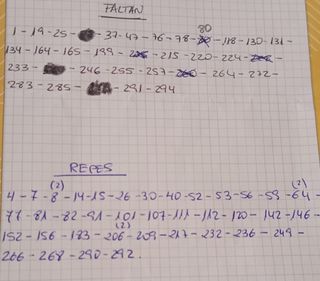 FALTAN
80
1 - 19 - 25 - - 37 - 47 - 76 - 78 - - 118 - 130 - 131 -
134 - 164 - 165 - 199 - - 215 - 220 - 224 - -
233 - - 246 - 255 - 257 - - 264 - 272 -
283 - 285 - - 291 - 294
REPES
(2) (2)
4 - 7 - 8 - 14 - 15 - 26 - 30 - 40 - 52 - 53 - 56 - 59 - 64 -
77 - 81 - 82 - 91 - 101 - 107 - 111 - 112 - 120 - 142 - 146 -
(2)
152 - 156 - 183 - 206 - 209 - 217 - 232 - 236 - 249 -
266 - 268 - 290 - 292.